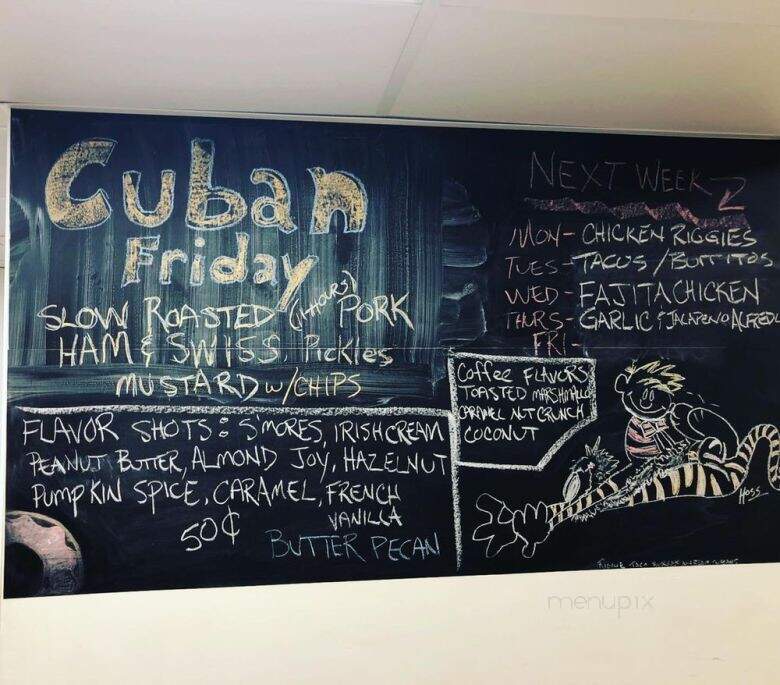 Cuban
Friday
SLOW ROASTED (14 HOURS) PORK
HAM & SWISS, Pickles
MUSTARD W/CHIPS
FLAVOR SHOTS: S'MORES, IRISH CREAM
PEANUT BUTTER, ALMOND JOY, HAZELNUT
PUMPKIN SPICE, CARAMEL, FRENCH
VANILLA
50¢
BUTTER PECAN
NEXT WEEK
MON- CHICKEN RIGGIES
TUES- TACOS / BURRITOS
WED- FAJITA CHICKEN
THURS- GARLIC & JALAPENO ALFREDO
FRI-
Coffee FLAVORS
TOASTED MARSHMALLO
CARAMEL NUT CRUNCH
COCONUT
Hoss
menupix